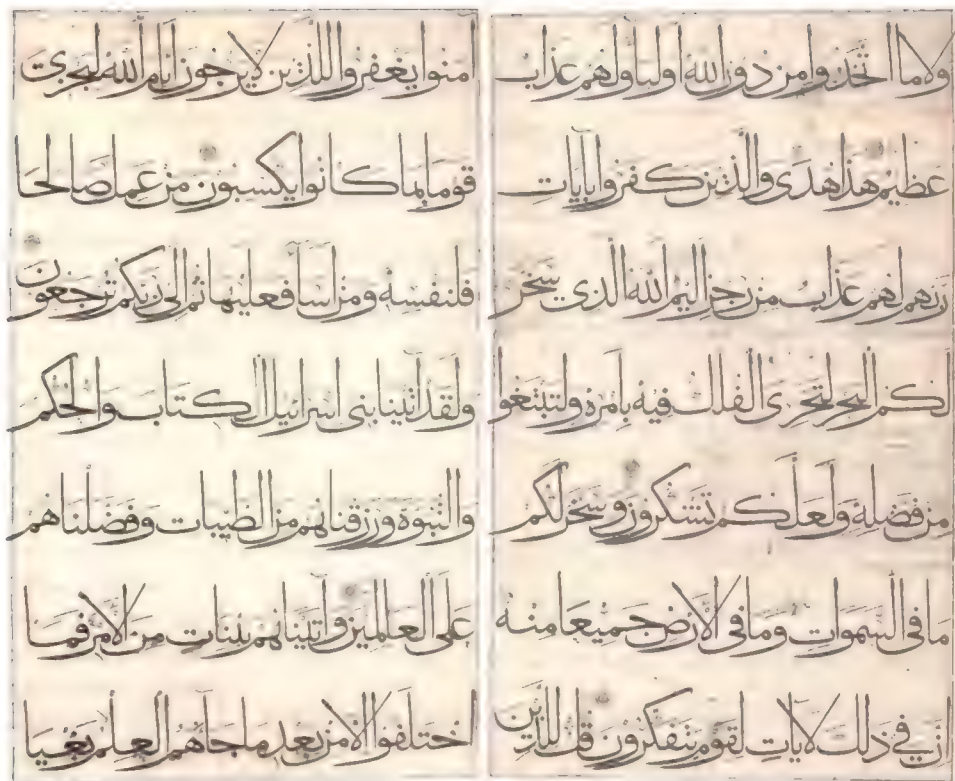 ولا ما اتخذوا من دون الله اوليا ولهم عذاب
عظيم هذا هدى والذين كفروا بايات
ربهم لهم عذاب من رجز اليم الله الذى سخر
لكم البحر لتجرى الفلك فيه بامره ولتبتغوا
من فضله ولعلكم تشكرون وسخر لكم
ما فى السموات وما فى الارض جميعا منه
ان فى ذلك لايات لقوم يتفكرون قل للذين
امنوا يغفروا للذين لا يرجون ايام الله ليجزى
قوما بما كانوا يكسبون من عمل صالحا
فلنفسه ومن اسا فعليها ثم الى ربكم ترجعون
ولقد اتينا بنى اسرائيل الكتاب والحكم
والنبوة ورزقناهم من الطيبات وفضلناهم
على العلمين واتيناهم بينات من الامر فما
اختلفوا الا من بعد ما جاهم العلم بغيا